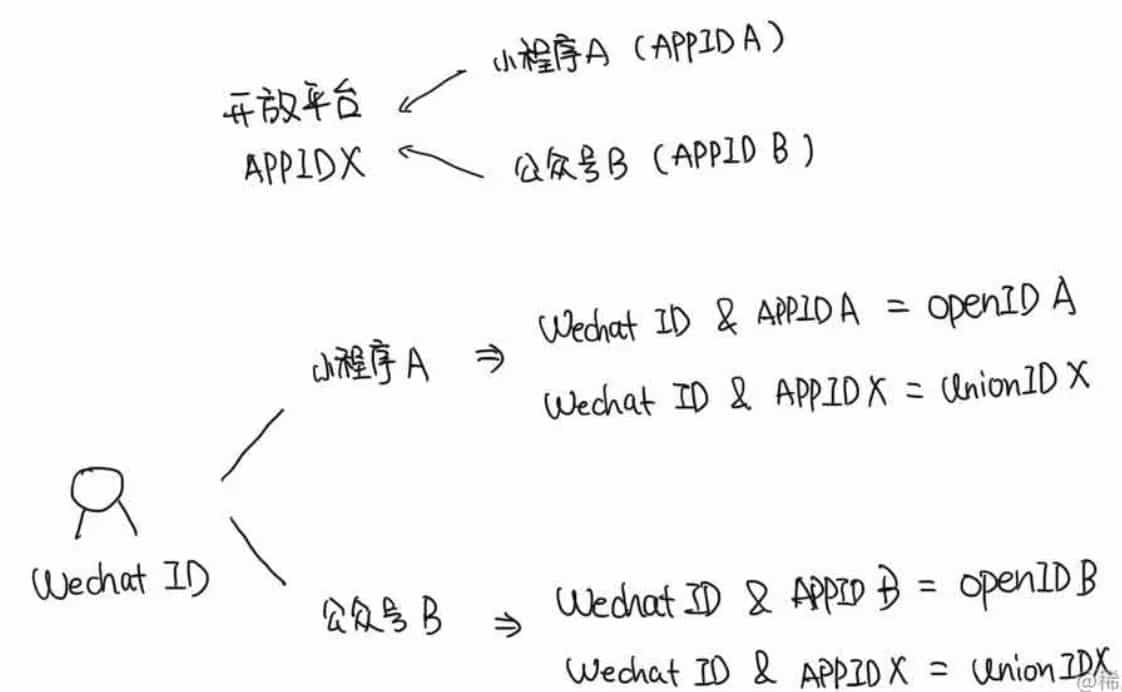 小程序A (APPID A)
开放平台
APPIDX
公众号B (APPID B)
Wechat ID & APPIDA = openID A
小程序A ⇒
Wechat ID & APPIDX = UnionID X
Wechat ID
Wechat ID & APPID B = openID B
公众号B ⇒
Wechat ID & APPIDX = UnionIDX
@稀